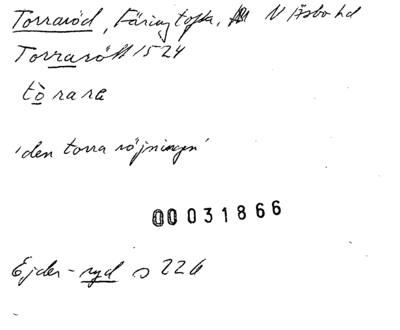 Torraröd, Färingtofta, N Åsbo hd
Torrarött 1524
tòrarə
'den torra röjningen'
00031866
Ejder-ryd s 226